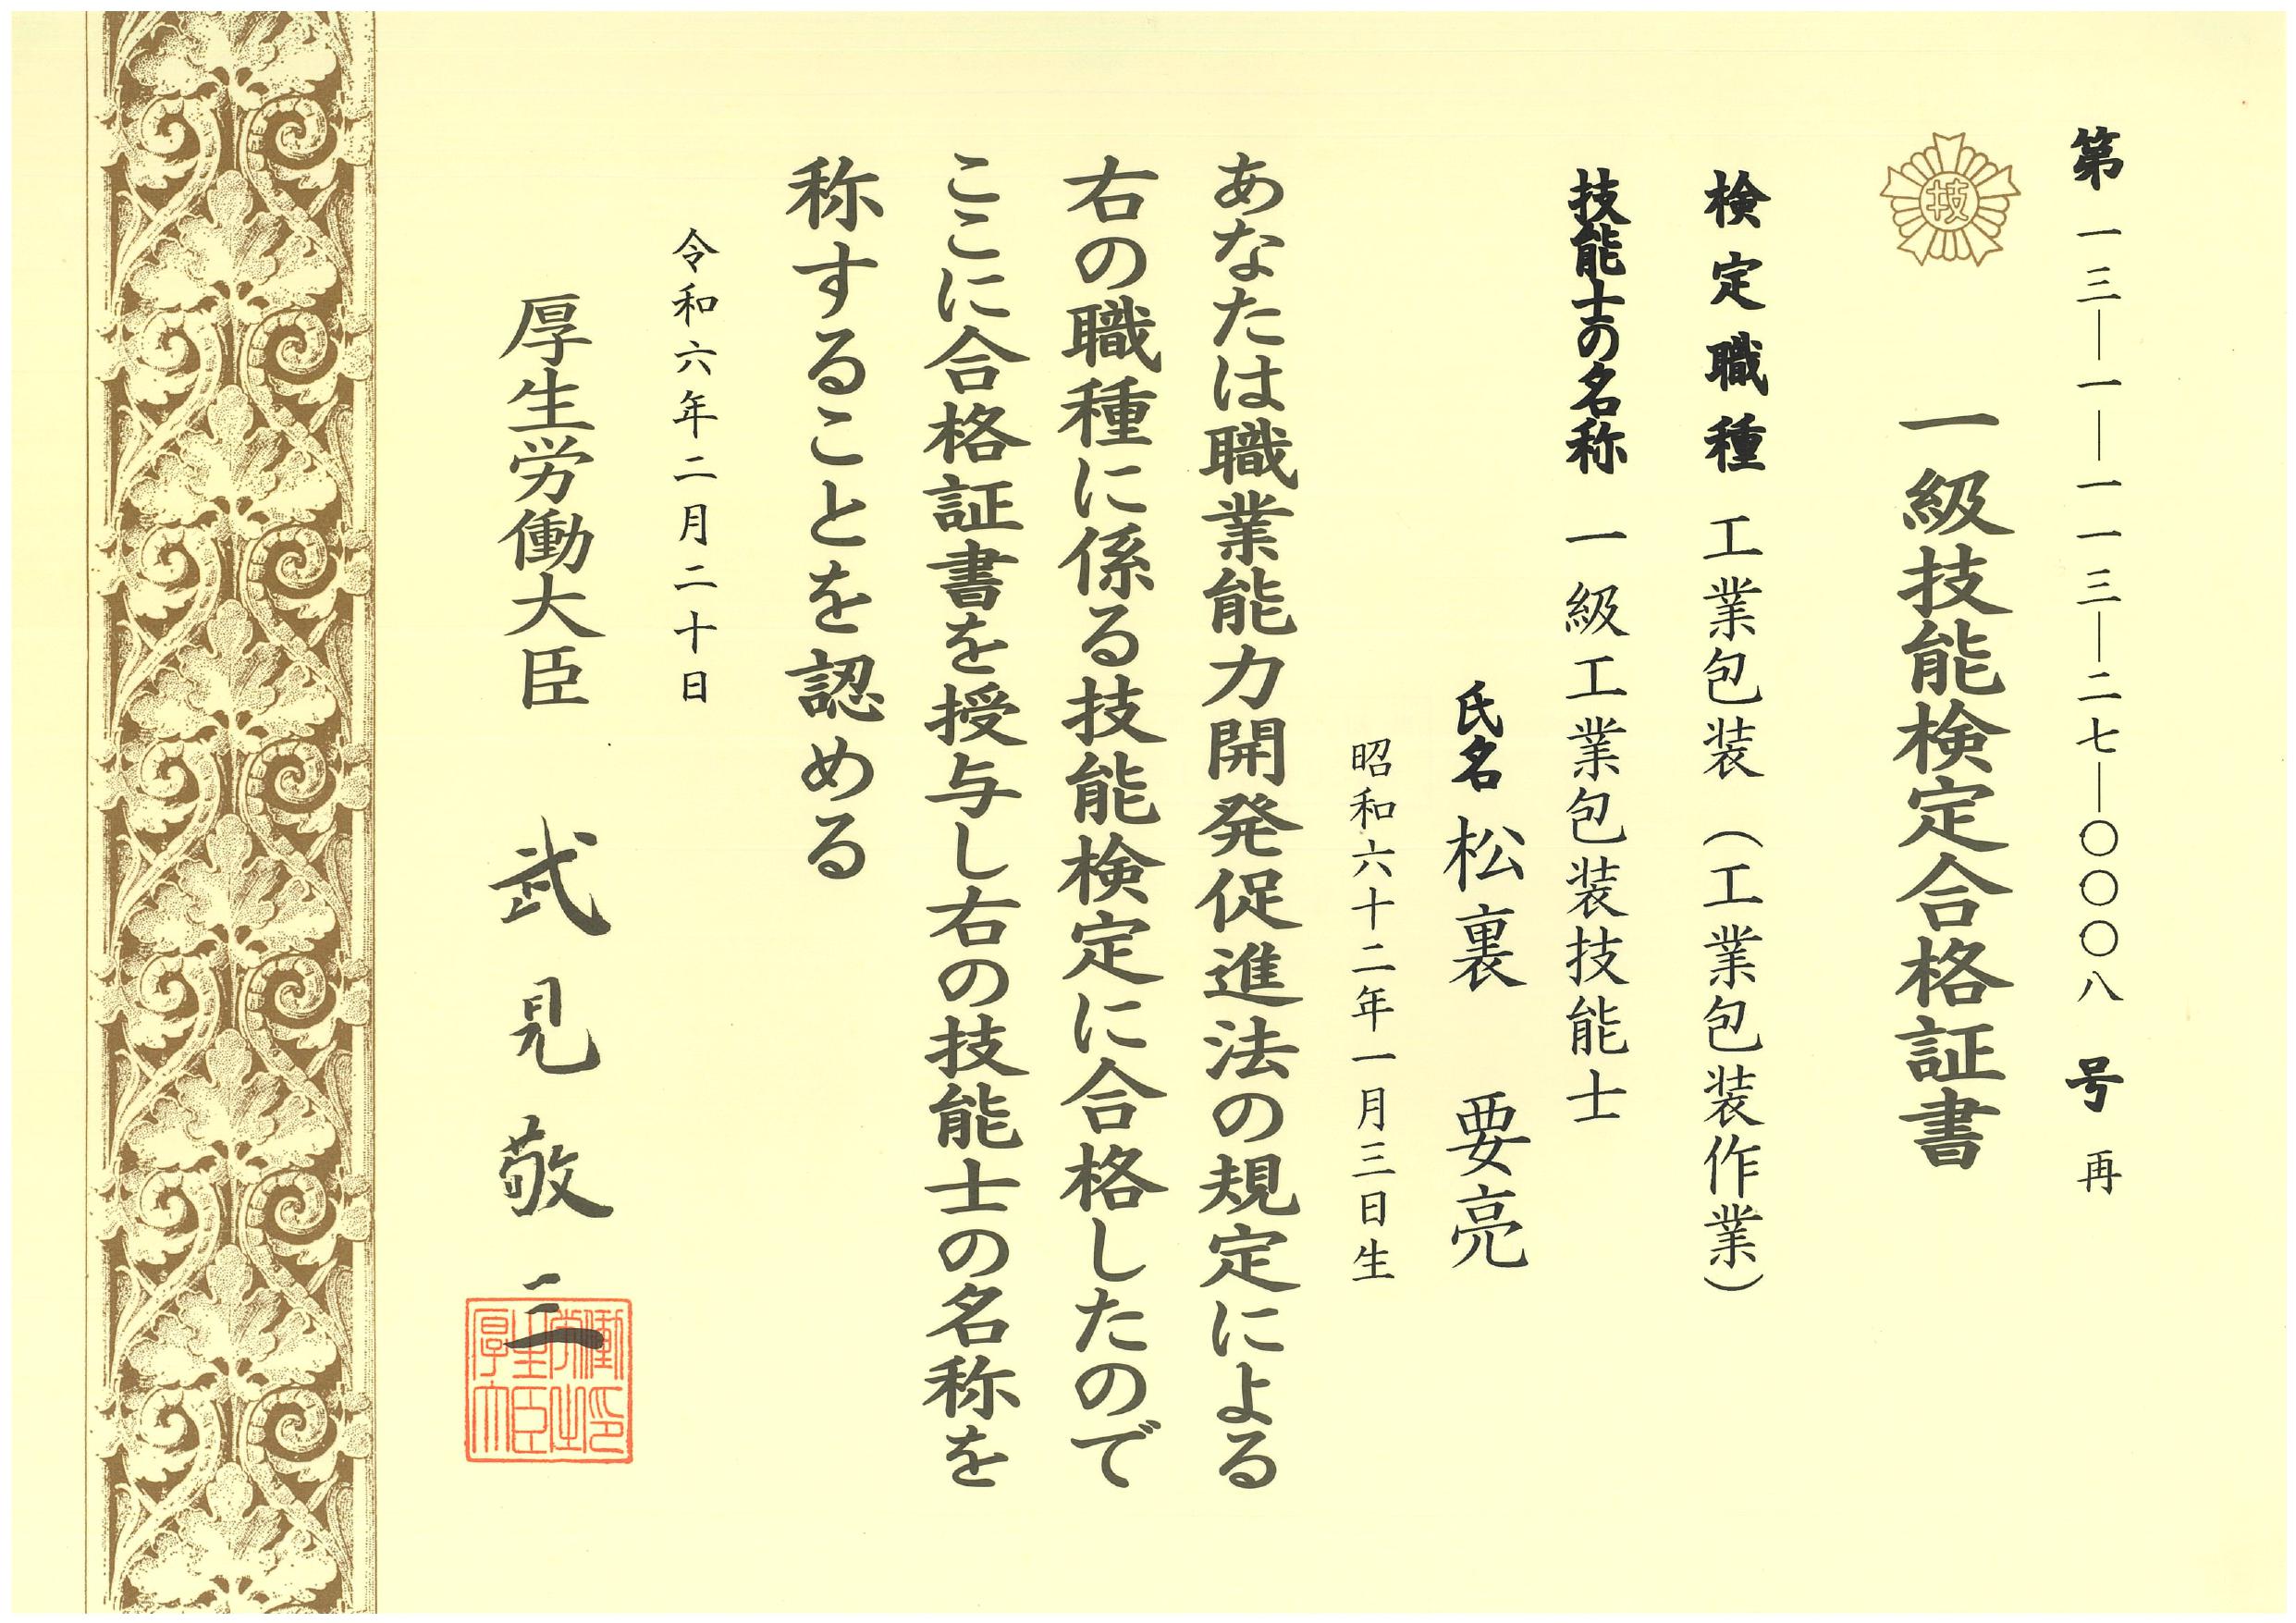 第一三―一―一一三―二七―〇〇〇八号再
技
一級技能検定合格証書
検定職種 工業包装（工業包装作業）
技能士の名称 一級工業包装技能士
氏名 松裏 要亮
昭和六十二年一月三日生
あなたは職業能力開発促進法の規定による
右の職種に係る技能検定に合格したので
ここに合格証書を授与し右の技能士の名称を
称することを認める
令和六年二月二十日
厚生労働大臣 武見敬三
厚生労働大臣之印